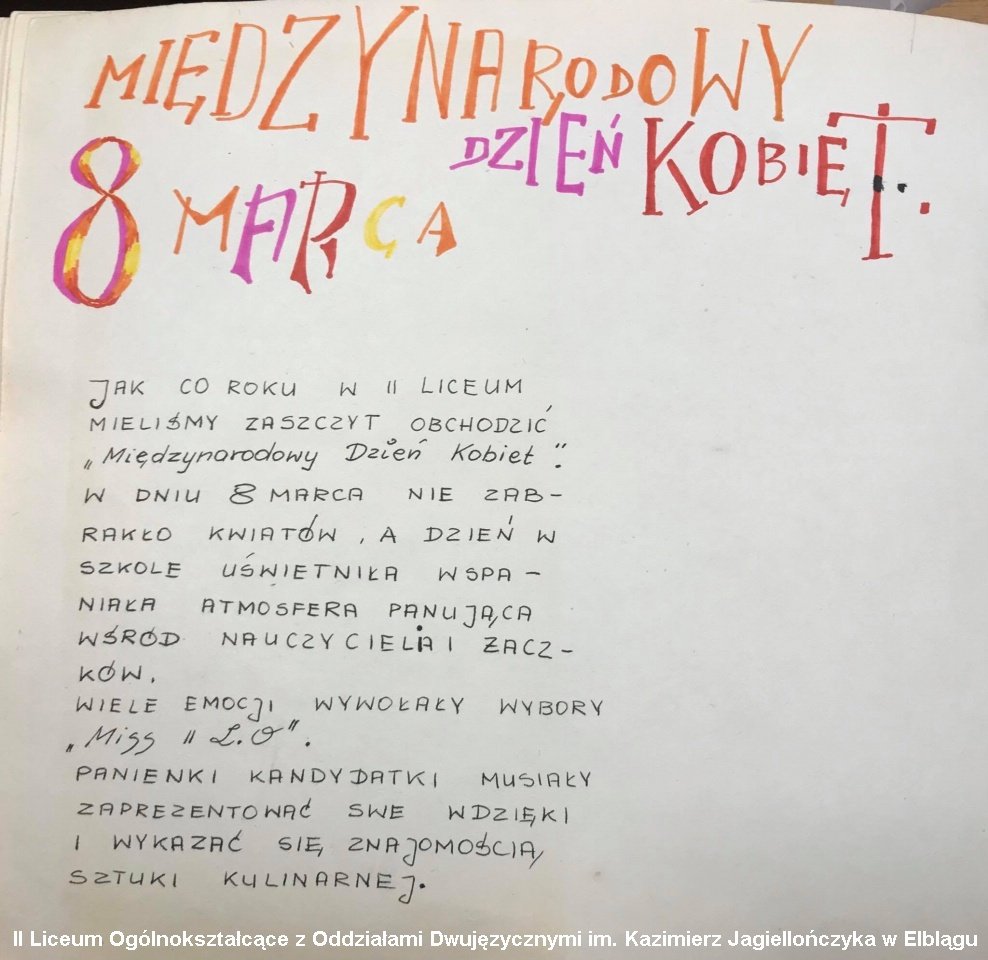 MIĘDZYNARODOWY
DZIEŃ KOBIET.
8 MARCA
JAK CO ROKU W II LICEUM
MIELIŚMY ZASZCZYT OBCHODZIĆ
„Międzynarodowy Dzień Kobiet".
W DNIU 8 MARCA NIE ZAB-
RAKŁO KWIATÓW, A DZIEŃ W
SZKOLE UŚWIETNIŁA WSPA-
NIAŁA ATMOSFERA PANUJĄCA
WŚRÓD NAUCZYCIELI I ŻACZ-
KÓW.
WIELE EMOCJI WYWOŁAŁY WYBORY
„Miss II L.O".
PANIENKI KANDYDATKI MUSIAŁY
ZAPREZENTOWAĆ SWE WDZIĘKI
I WYKAZAĆ SIĘ ZNAJOMOŚCIĄ
SZTUKI KULINARNEJ.
II Liceum Ogólnokształcące z Oddziałami Dwujęzycznymi im. Kazimierz Jagiellończyka w Elblągu